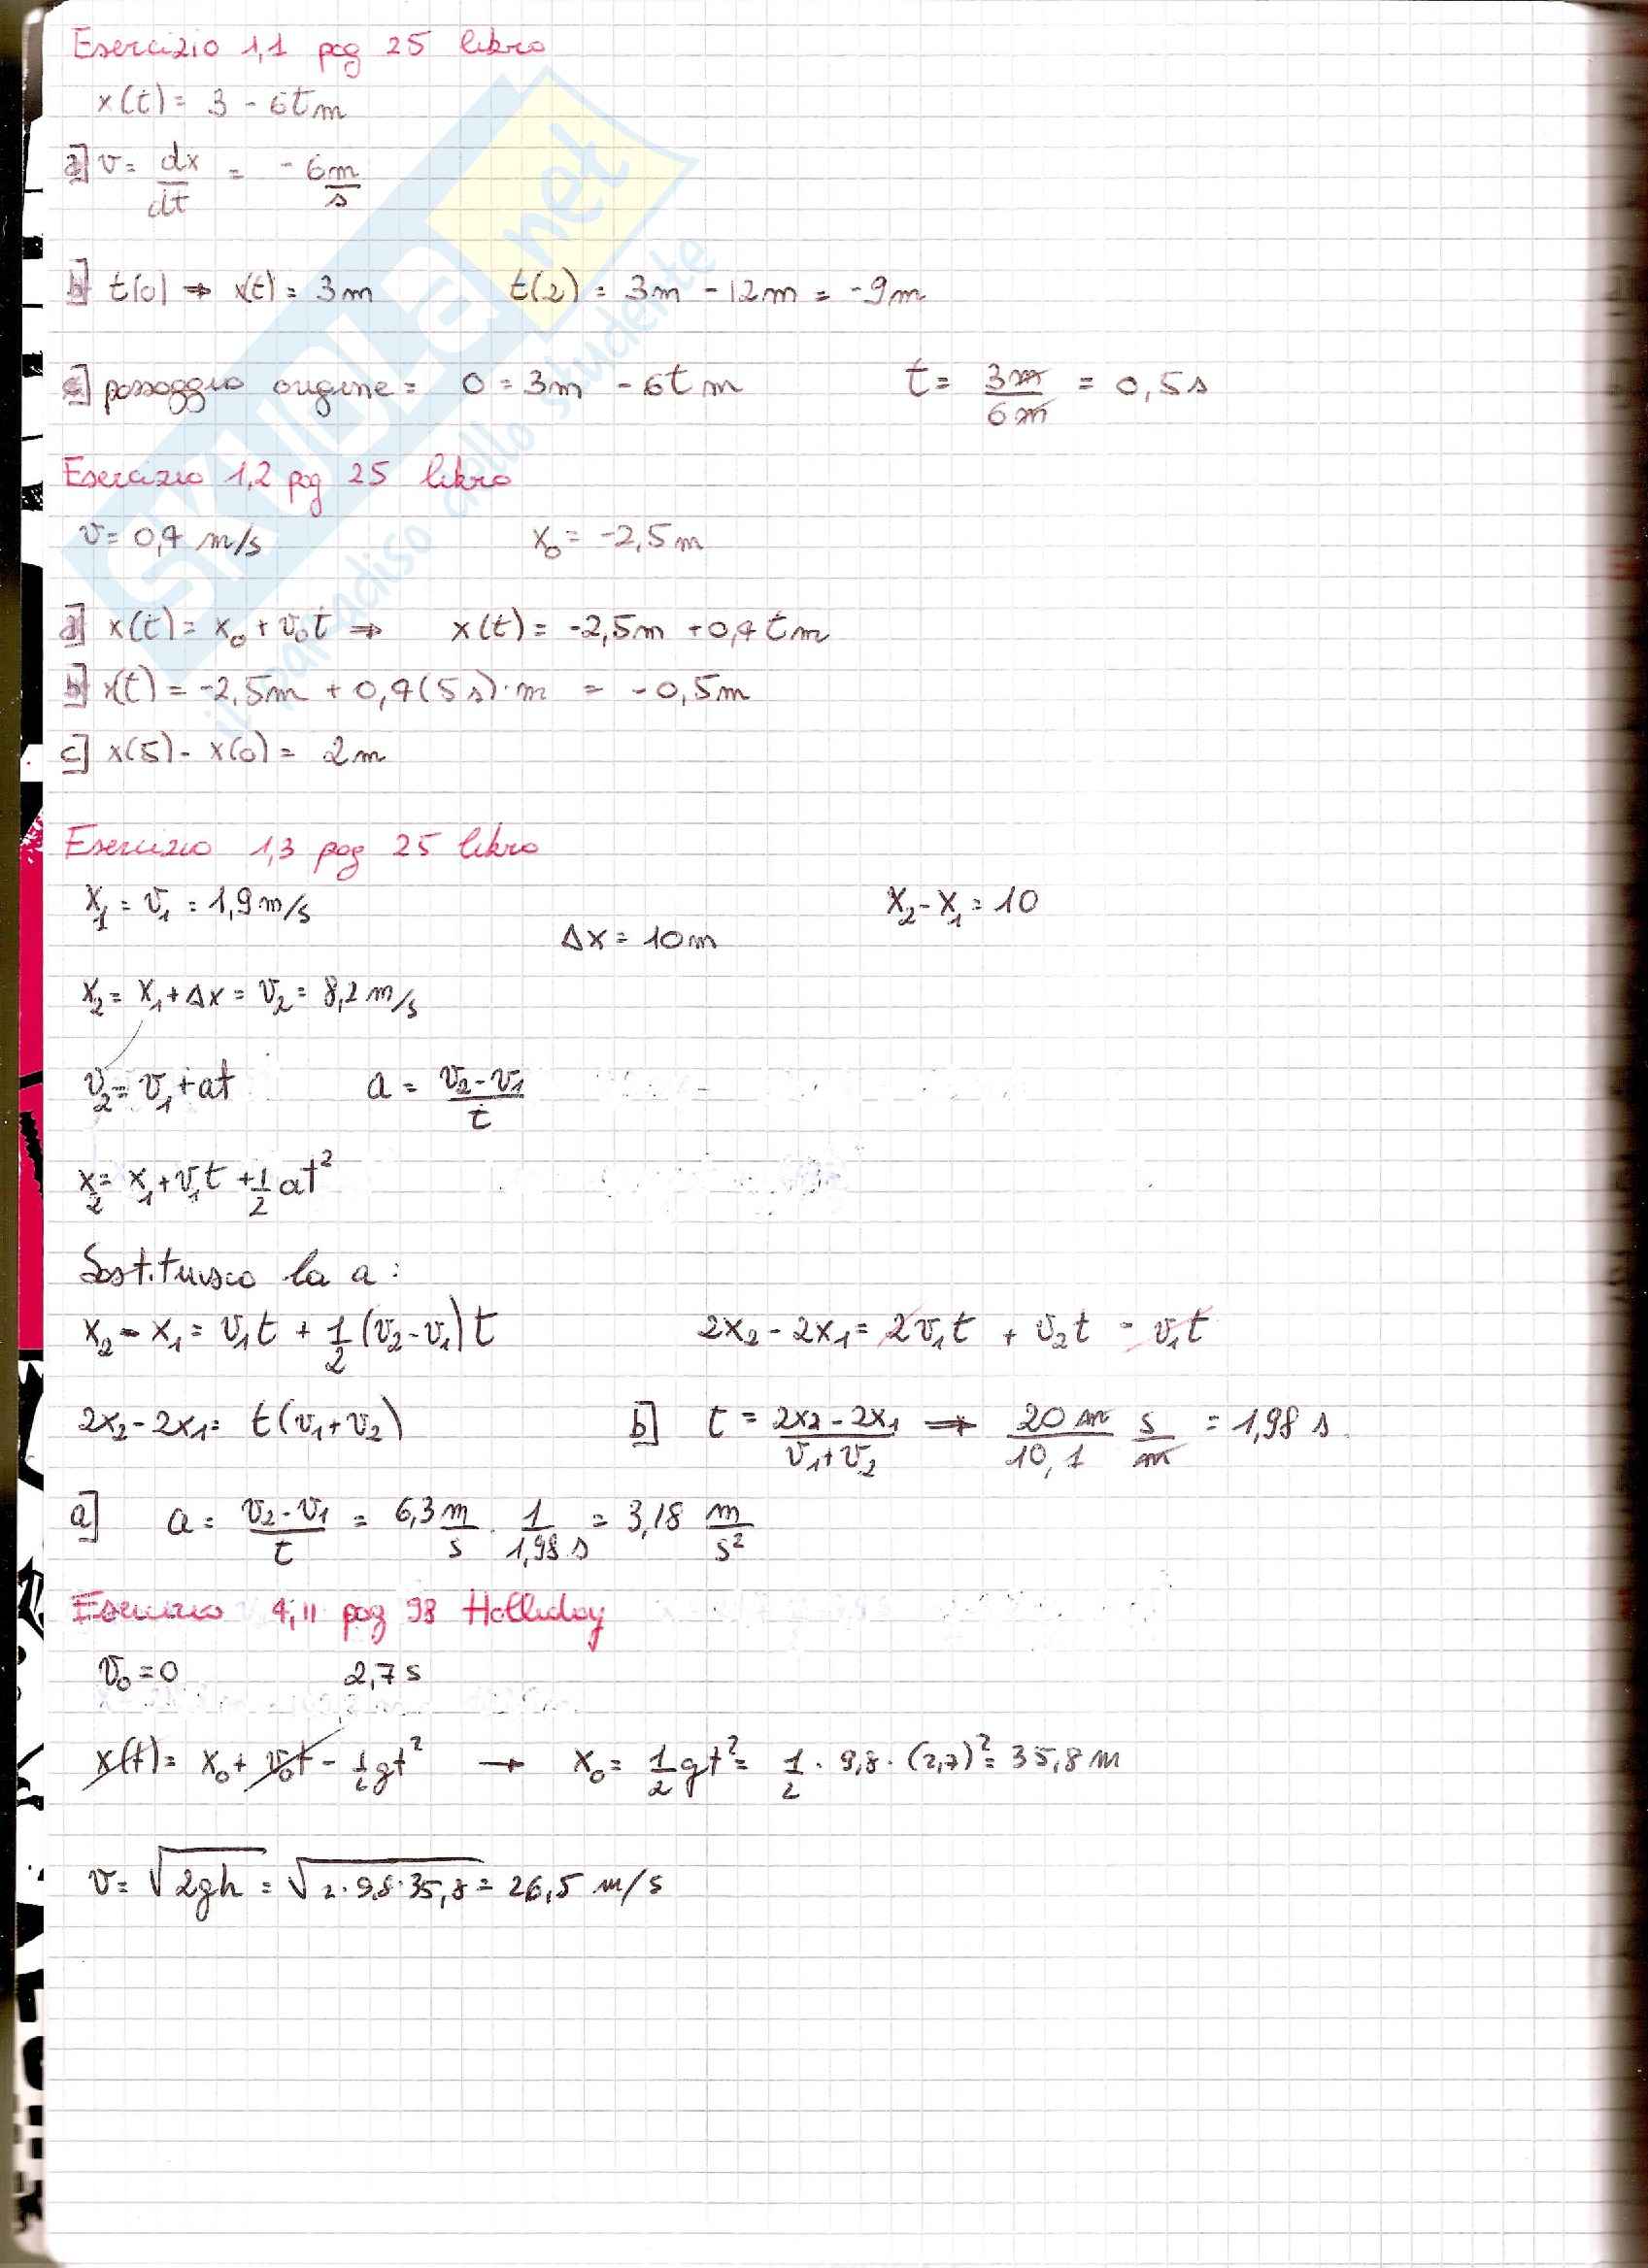 Esercizio 1,1 pag 25 libro
x(t) = 3 - 6t m
a] v = dx/dt = -6 m/s
b] t(0) ⇒ x(t) = 3m t(2) = 3m - 12m = -9m
c] passaggio origine = 0 = 3m - 6t m t = 3m/6m = 0,5 s
Esercizio 1,2 pag 25 libro
v = 0,4 m/s x₀ = -2,5 m
a] x(t) = x₀ + v₀t ⇒ x(t) = -2,5m + 0,4 t m
b] x(t) = -2,5m + 0,4(5 s)·m = -0,5m
c] x(5) - x(0) = 2m
Esercizio 1,3 pag 25 libro
x₁ = v₁ = 1,9 m/s x₂ - x₁ = 10
Δx = 10 m
x₂ = x₁ + Δx = v₂ = 8,2 m/s
v₂ = v₁ + at a = (v₂ - v₁)/t
x₂ = x₁ + v₁t + 1/2 at²
Sostituisco la a:
x₂ - x₁ = v₁t + 1/2 (v₂ - v₁) t 2x₂ - 2x₁ = 2v₁t + v₂t - v₁t
2x₂ - 2x₁ = t(v₁ + v₂) b] t = (2x₂ - 2x₁)/(v₁ + v₂) ⇒ 20 m/10,1 s/m = 1,98 s.
a] a = (v₂ - v₁)/t = 6,3 m/s · 1/1,98 s = 3,18 m/s²
Esercizio 4,11 pag 98 Halliday
v₀ = 0 2,7 s
x(t) = x₀ + v₀t - 1/2 gt² → x₀ = 1/2 gt² = 1/2 · 9,8 · (2,7)² = 35,8 m
v = √2gh = √2·9,8·35,8 = 26,5 m/s
SKUOLA.net
il paradiso dello studente